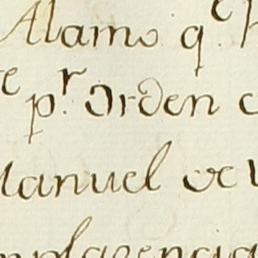 Alamo q.e
p.r orden
Manuel de
mplacencia